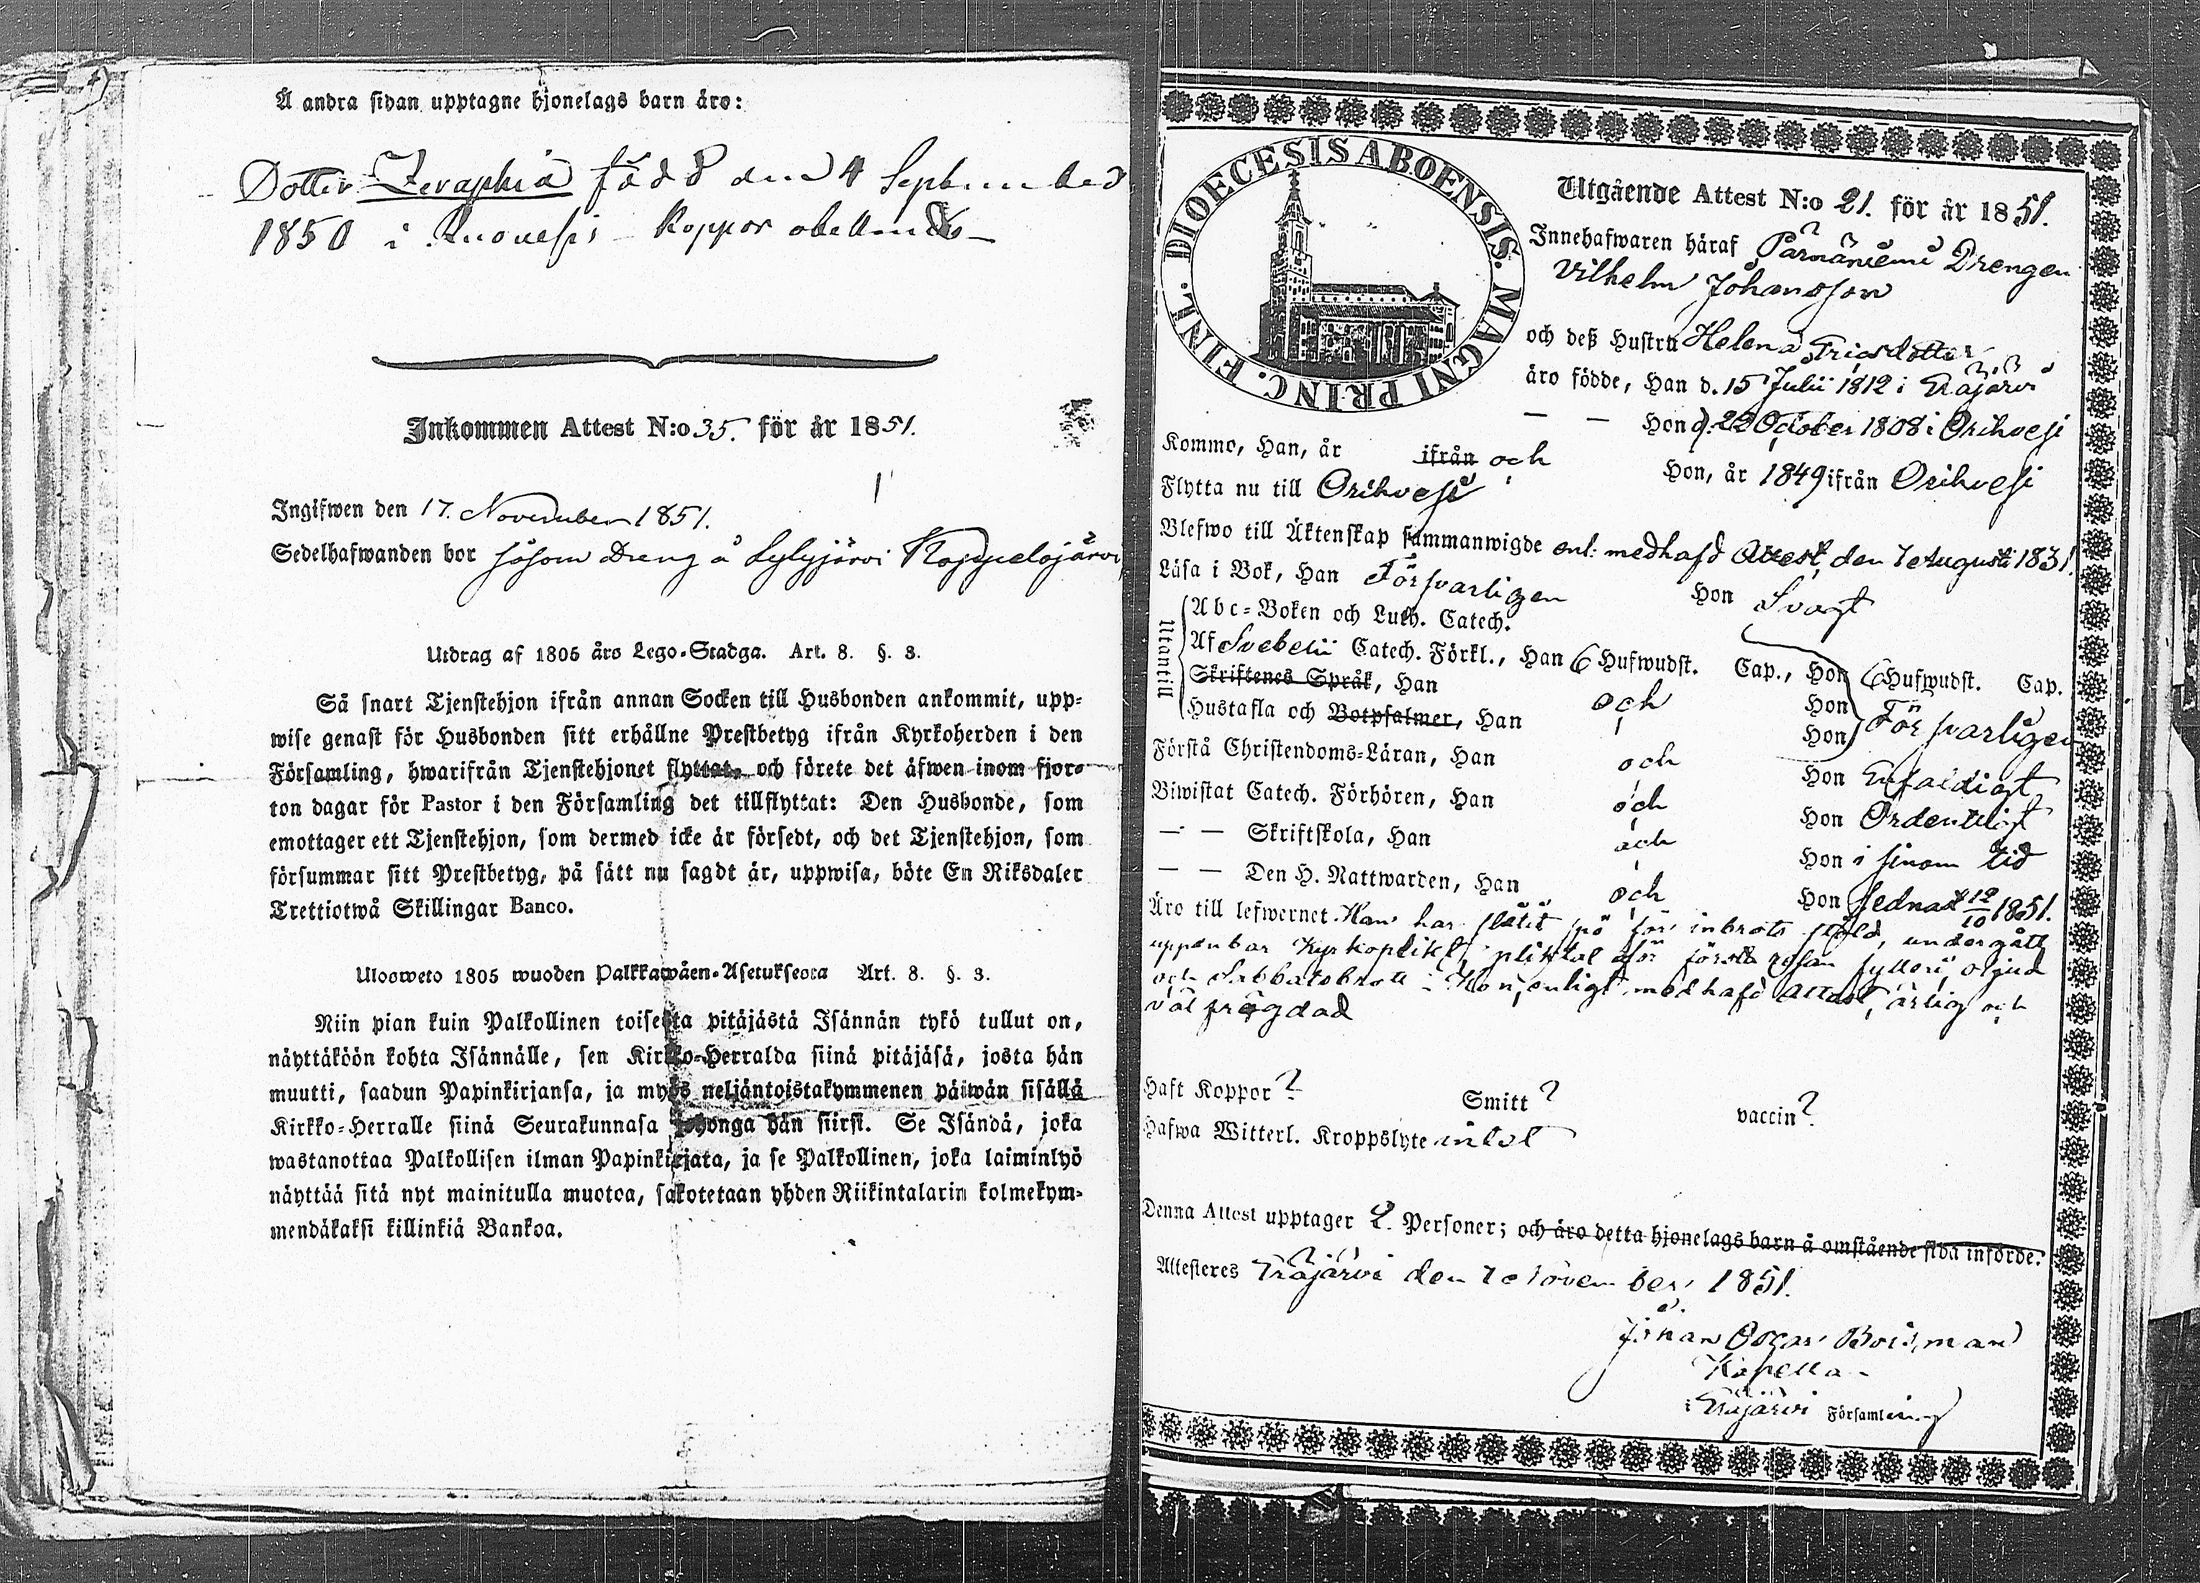 Å andra sidan upptagne hjonelags barn äro:
Dotter Zeraphia född den 4 September
1850 i Kuovesi Koppor
Inkommen Attest N:o 35. för år 1851.
Ingifwen den 17. November 1851.
Sedelhafwanden bor såsom Dreng å Lylyjärvi Koppelojärvi
Utdrag af 1805 års Lego-Stadga. Art. 8. §. 3.
Så snart Tjenstehjon ifrån annan Socken till Husbonden ankommit, upp-
wise genast för Husbonden sitt erhållne Prestbetyg ifrån Kyrkoherden i den
Församling, hwarifrån Tjenstehjonet flyttat, och förete det äfwen inom fjor-
ton dagar för Pastor i den Församling det tillflyttat: Den Husbonde, som
emottager ett Tjenstehjon, som dermed icke är försedt, och det Tjenstehjon, som
försummar sitt Prestbetyg, på sätt nu sagdt är, uppwisa, böte En Riksdaler
Trettiotwå Skillingar Banco.
Uloosweto 1805 wuoden Palkkawäen-Asetuksesta Art. 8. §. 3.
Niin pian kuin Palkollinen toisesta pitäjästä Isännän tykö tullut on,
näyttäköön kohta Isännälle, sen Kirkko-Herralda siinä pitäjäsä, josta hän
muutti, saadun Papinkirjansa, ja myös neljäntoistakymmenen päiwän sisällä
Kirkko-Herralle siinä Seurakunnasa johonga hän siirsi. Se Isändä, joka
wastanottaa Palkollisen ilman Papinkirjata, ja se Palkollinen, joka laiminlyö
näyttää sitä nyt mainitulla muotoa, sakotetaan yhden Riikintalarin kolmekym-
mendäkaksi killinkiä Bankoa.
DIOECESIS ABOENSIS. MAGNI PRINC. FINL.
Utgående Attest N:o 21. för år 1851.
Innehafwaren häraf Pärnäniemi Drengen
Vilhelm Johansson
och deß Hustru Helena Ericsdotter
äro födde, Han d. 15 Julii 1812 i Eräjärvi
— — Hon d. 22 October 1808 i Orihvesi
Kommo, Han, år ifrån och Hon, år 1849 ifrån Orihvesi
Flytta nu till Orihvesi
Blefwo till Äktenskap sammanwigde enl: medhafd Attest, den 7 Augusti 1831.
Läsa i Bok, Han Försvarligen Hon Svagt
Utantill
Abc-Boken och Luth. Catech.
Af Svebelii Catech. Förkl., Han 6 Hufwudst. Cap., Hon 6 Hufwudst. Cap.
Skriftenes Språk, Han och Hon
Hustafla och Botpsalmer, Han Hon Försvarligen
Förstå Christendoms-Läran, Han och Hon Enfaldigt
Biwistat Catech. Förhören, Han och Hon Ordentligt
— — Skriftskola, Han och Hon i sinom tid
— — Den H. Nattwarden, Han och Hon sednast 12/10 1851.
Äro till lefwernet Han har slitit spö för inbrots stöld, undergått
uppenbar Kyrkoplikt, pliktat för första resan fylleri, oljud
och Sabbatsbrott – Hon, enligt medhafd Attest, ärlig och
väl frägdad
Haft Koppor? Smitt? vaccin?
Hafwa Witterl. Kroppslyte intet
Denna Attest upptager 2. Personer; och äro detta hjonelags barn å omstående sida införde.
Attesteres Eräjärvi den 7 November 1851.
Johan Oscar Boisman
Kapella-
i Eräjärvi Församling